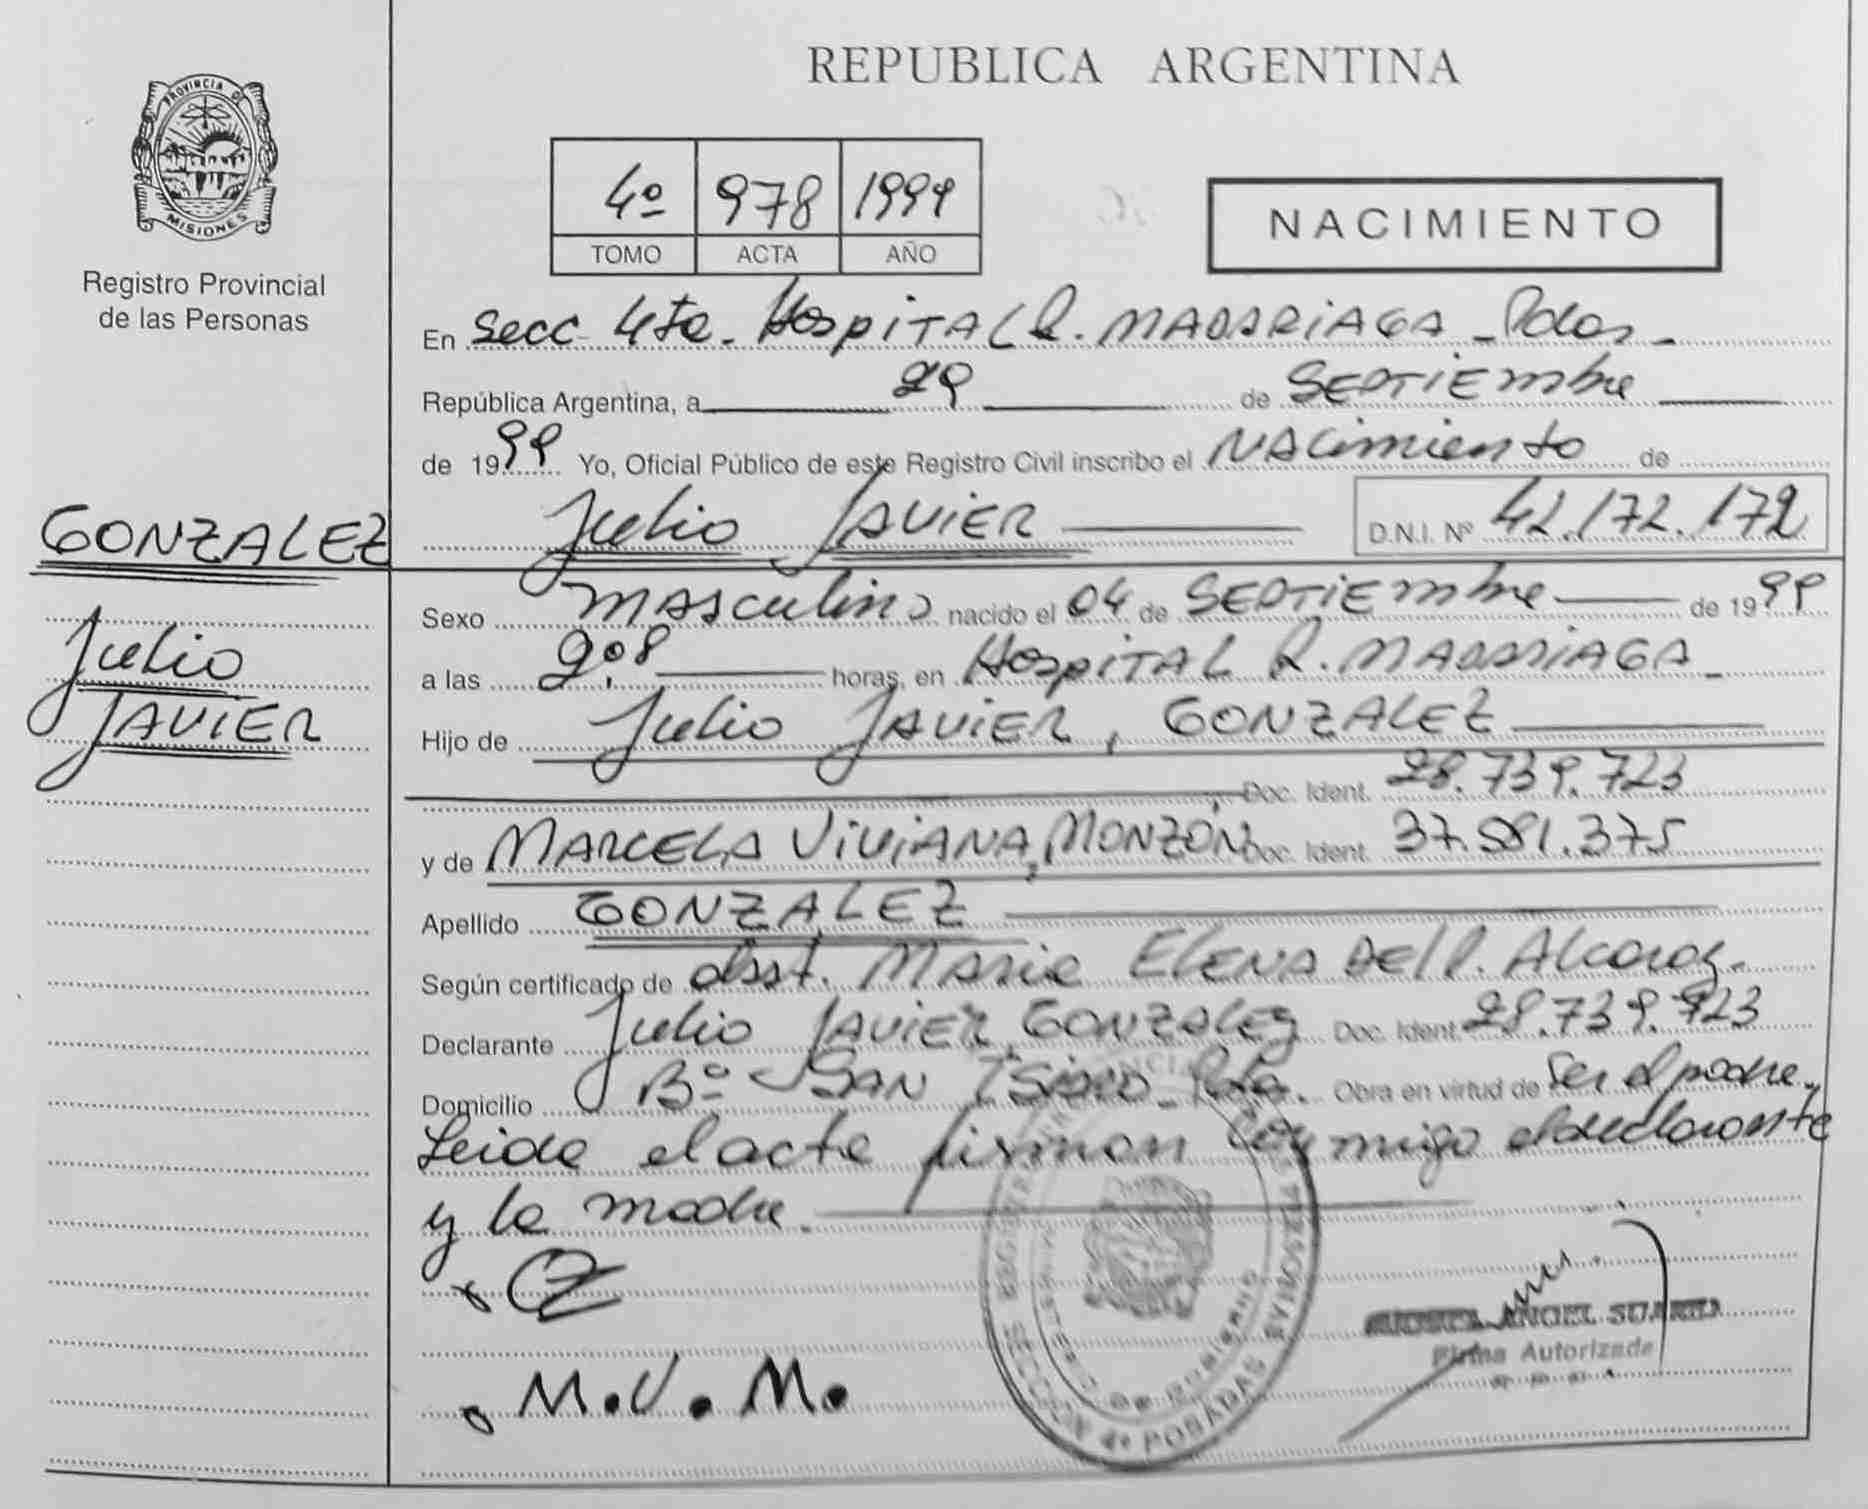 REPUBLICA ARGENTINA
PROVINCIA DE
MISIONES
Registro Provincial
de las Personas
4º 978 1999
TOMO ACTA AÑO
NACIMIENTO
En Secc 4ta. Hospital R. Madariaga - Pdas -
República Argentina, a 29 de Septiembre
de 1999 Yo, Oficial Público de este Registro Civil inscribo el Nacimiento de
GONZALEZ
Julio Javier D.N.I. Nº 42.172.172
Julio
JAVIER
Sexo masculino nacido el 04 de Septiembre de 1999
a las horas, en Hospital R. Madariaga -
Hijo de Julio Javier, GONZALEZ
Doc. Ident. 28.739.723
y de MARCELA VIVIANA, MONZÓN Doc. Ident. 37.581.375
Apellido GONZALEZ
Según certificado de obst. Maria Elena Dell.
Declarante Julio Javier Gonzalez Doc. Ident. 28.739.723
Domicilio Bº San Isidro - Pdas. Obra en virtud de ser el padre.
Leida el acta firman conmigo el declarante
y la madre.
GZ
M.V.M.
ANGEL
Firma Autorizada
SECCION 4ª POSADAS